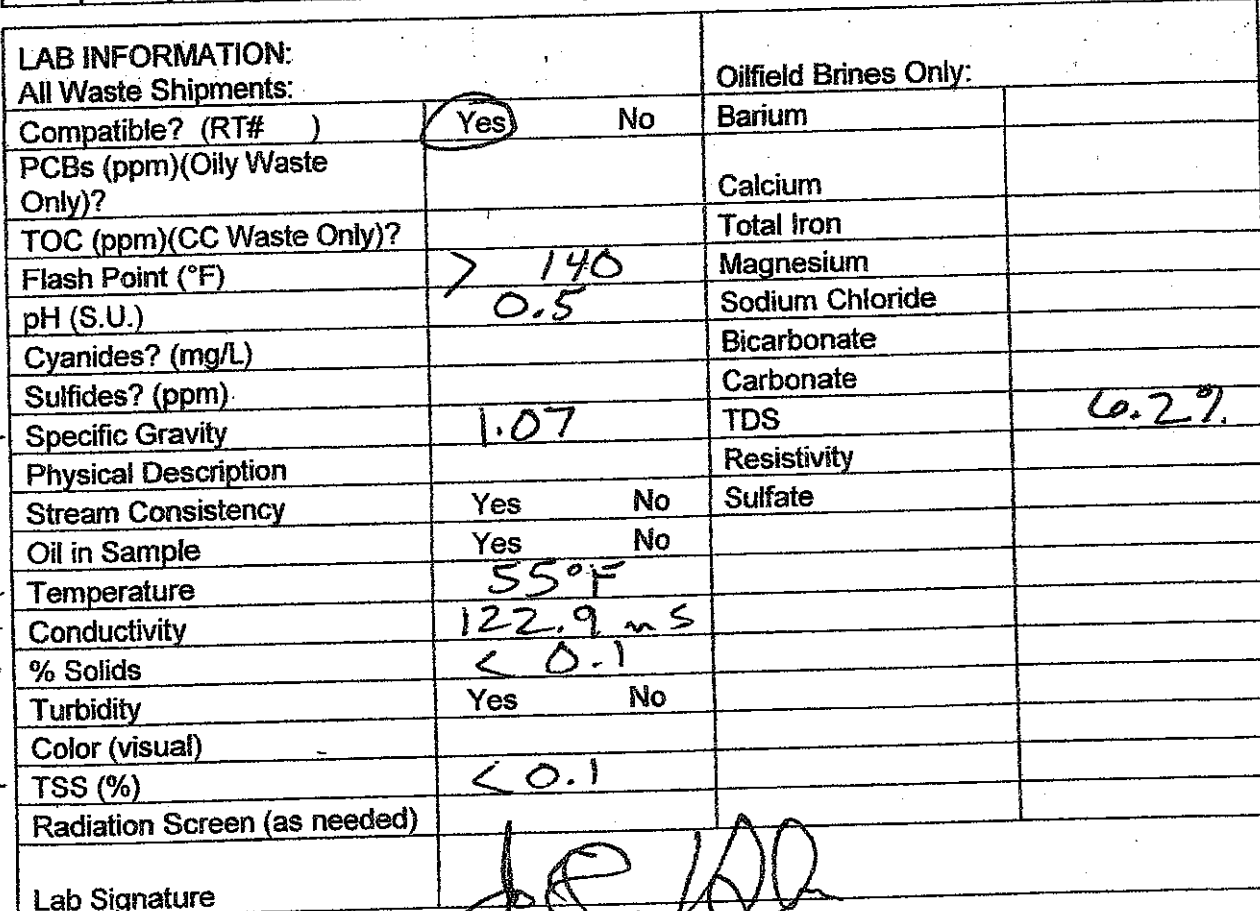 LAB INFORMATION:
All Waste Shipments:
Oilfield Brines Only:
Compatible? (RT# ) Yes No Barium
PCBs (ppm)(Oily Waste
Only)? Calcium
TOC (ppm)(CC Waste Only)? Total Iron
Flash Point (°F) > 140 Magnesium
pH (S.U.) 0.5 Sodium Chloride
Cyanides? (mg/L) Bicarbonate
Sulfides? (ppm) Carbonate
Specific Gravity 1.07 TDS 6.2%
Physical Description Resistivity
Stream Consistency Yes No Sulfate
Oil in Sample Yes No
Temperature 55°F
Conductivity 122.9 mS
% Solids < 0.1
Turbidity Yes No
Color (visual)
TSS (%) < 0.1
Radiation Screen (as needed)
Lab Signature